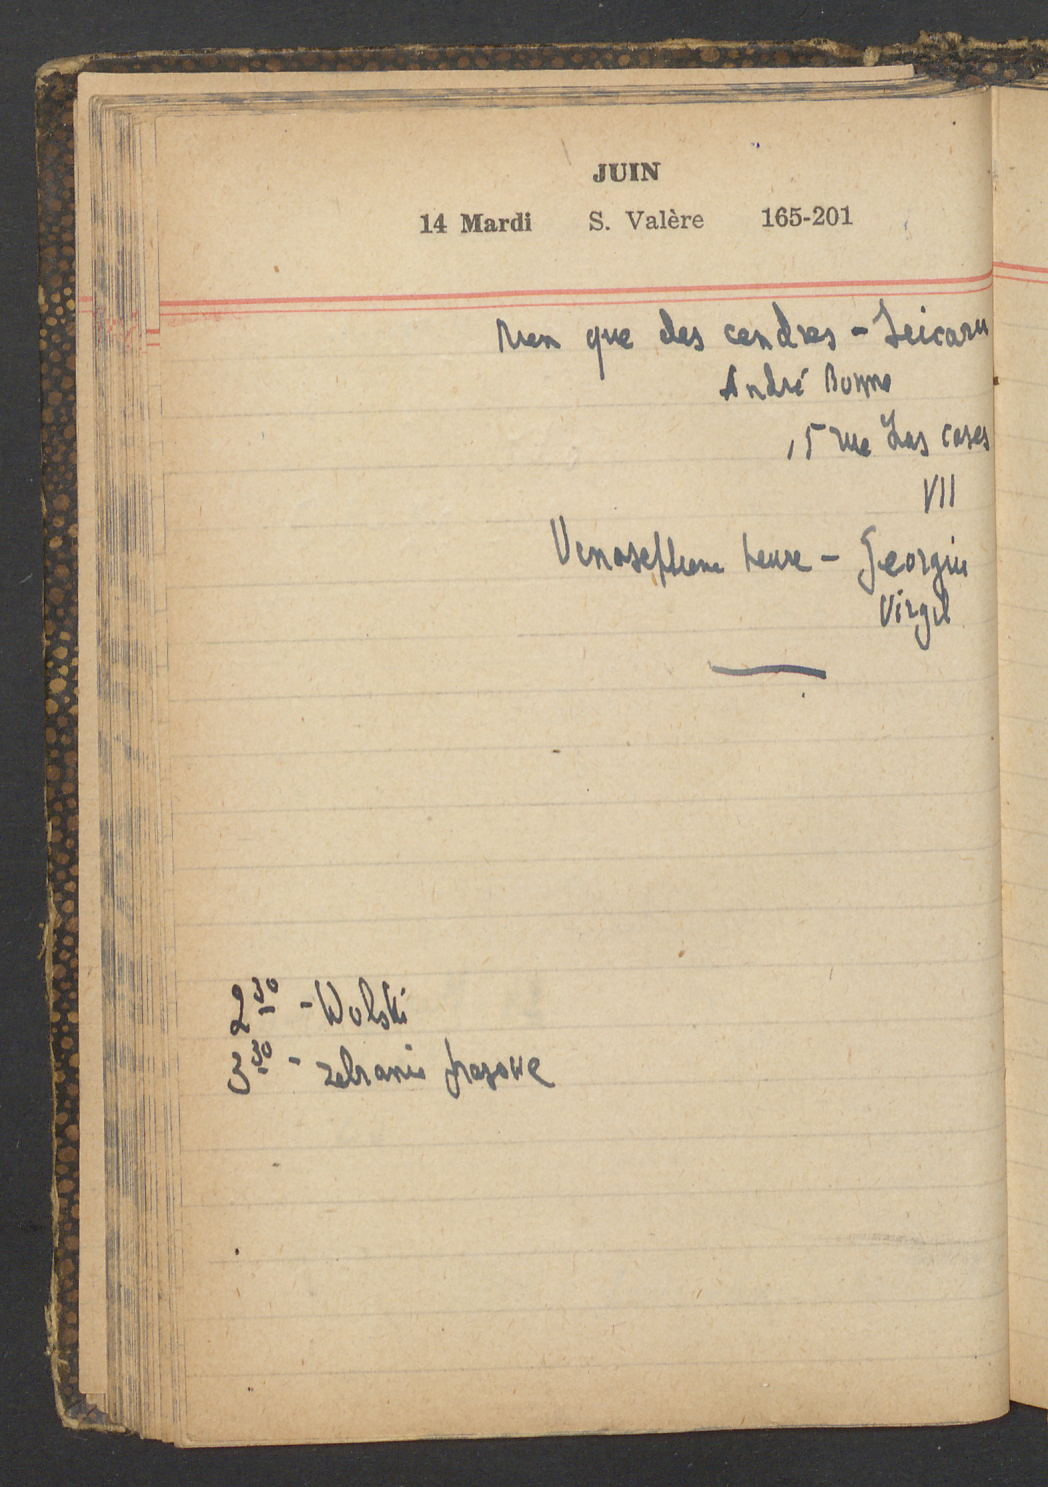 JUIN
14 Mardi S. Valère 165-201
Rien que des cendres - Seicaru
André Bonne
15 rue Las Cases
VII
heure - Georgiu
Virgil
2 30 - Wolski
3 30 - zebranie prasowe